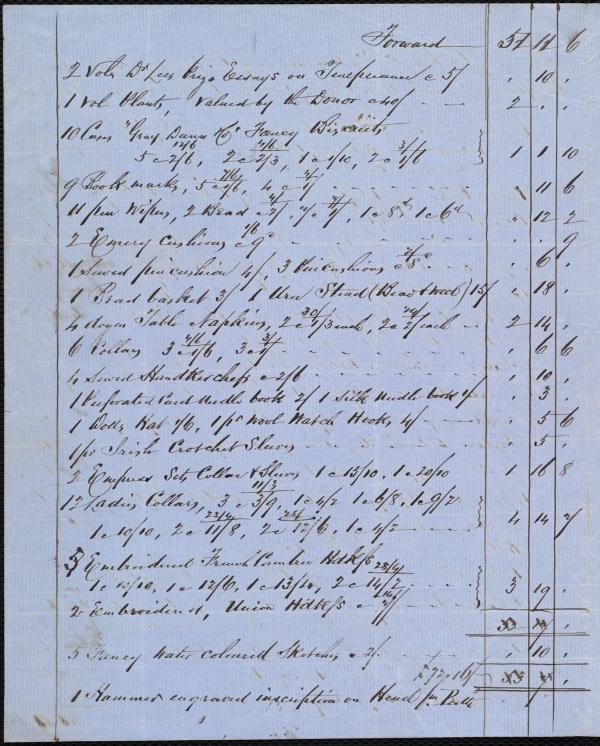 Forward 51 11 6
2 Vols Dr Lees Prize Essays on Temperance @ 5/ " 10 "
1 vol Plants, valued by the Donor @ 40/ - - 2 " "
10 Cases "Gray, Fancy Biscuits
5 @ 2/6, 12/6 2 @ 2/3, 4/6 1 @ 1/10, 2 @ 1/6 3/ 1 1 10
9 Book marks, 5 @ 1/6, 7/6 4 @ 1/ 4/ - - - " 11 6
11 pen Wipers, 2 Bead @ 1/ 2/, 1 @ 8d, 1 @ 6d " 12 2
2 Emery cushions @ 9d - - - " " 9
1 Sewed pincushion 4/, 3 Pincushions @ 8d 2/ - - " 6 "
1 Bead basket 3/ 1 Urn Stand (Bead & wool) 15/ " 18 "
4 dozen Table Napkins, 2 @ 30/ each, 2 @ 24/ each - 2 14 "
6 Collars 3 @ 1/6, 4/6 3 @ 1/ - - - " 6 6
4 Sewed Handkerchiefs @ 2/6 - - - " 10 "
1 Perforated Card needle book 2/ 1 Silk needle book 1/ " 3 "
1 Doll's Hat 1/6, 1 pr Wool Watch Hooks, 4/ - - " 5 6
1 pr Irish Crotchet Sleeves - - - " 5 "
2 Empress Sets Collar & Sleeves 1 @ 15/10, 1 @ 20/10 1 16 8
12 Ladies Collars, 3 @ 3/9, 11/3 1 @ 4/2 1 @ 6/8, 1 @ 9/2
1 @ 10/10, 2 @ 11/8, 23/4 2 @ 12/6, 1 @ 4/2 - - 4 14 7
5 Embroidered French Cambric Hdkfs
1 @ 12/6, 1 @ 13/4, 2 @ 14/2 28/4 - - 3 19 "
2 Embroidered, Union Hdkfs @ 7/ 14/
5 Fancy Water coloured Sketches @ 2/ - - " 10 "
£72,,16/
1 Hammer engraved inscription on Head fm Perth